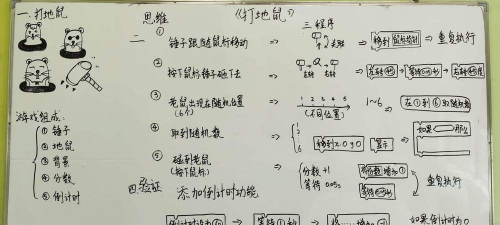 一.打地鼠
思维
《打地鼠》
三.程序
二
① 锤子跟随鼠标移动 ⇒ ⇒ 移到鼠标指针 ⇒ 重复执行
② 按下鼠标锤子砸下去 ⇒ 左转 右转 ⇒
③ 老鼠出现在随机位置 (6个) ⇒ 1 2 3 4 5 6 (不同位置) 1~6 ⇒ 在①到⑥取随机数
④ 取到随机数 ⇒ 移到x:0 y:0 显示 ⇒ 如果 那么
⑤ 碰到老鼠 (按下鼠标) ⇒ 分数+1 等待0.05s 重复执行
游戏组成:
① 锤子
② 地鼠
③ 背景
④ 分数
⑤ 倒计时
四.验证
添加倒计时功能
⇒ 等待1秒 ⇒ 如果倒计时为0